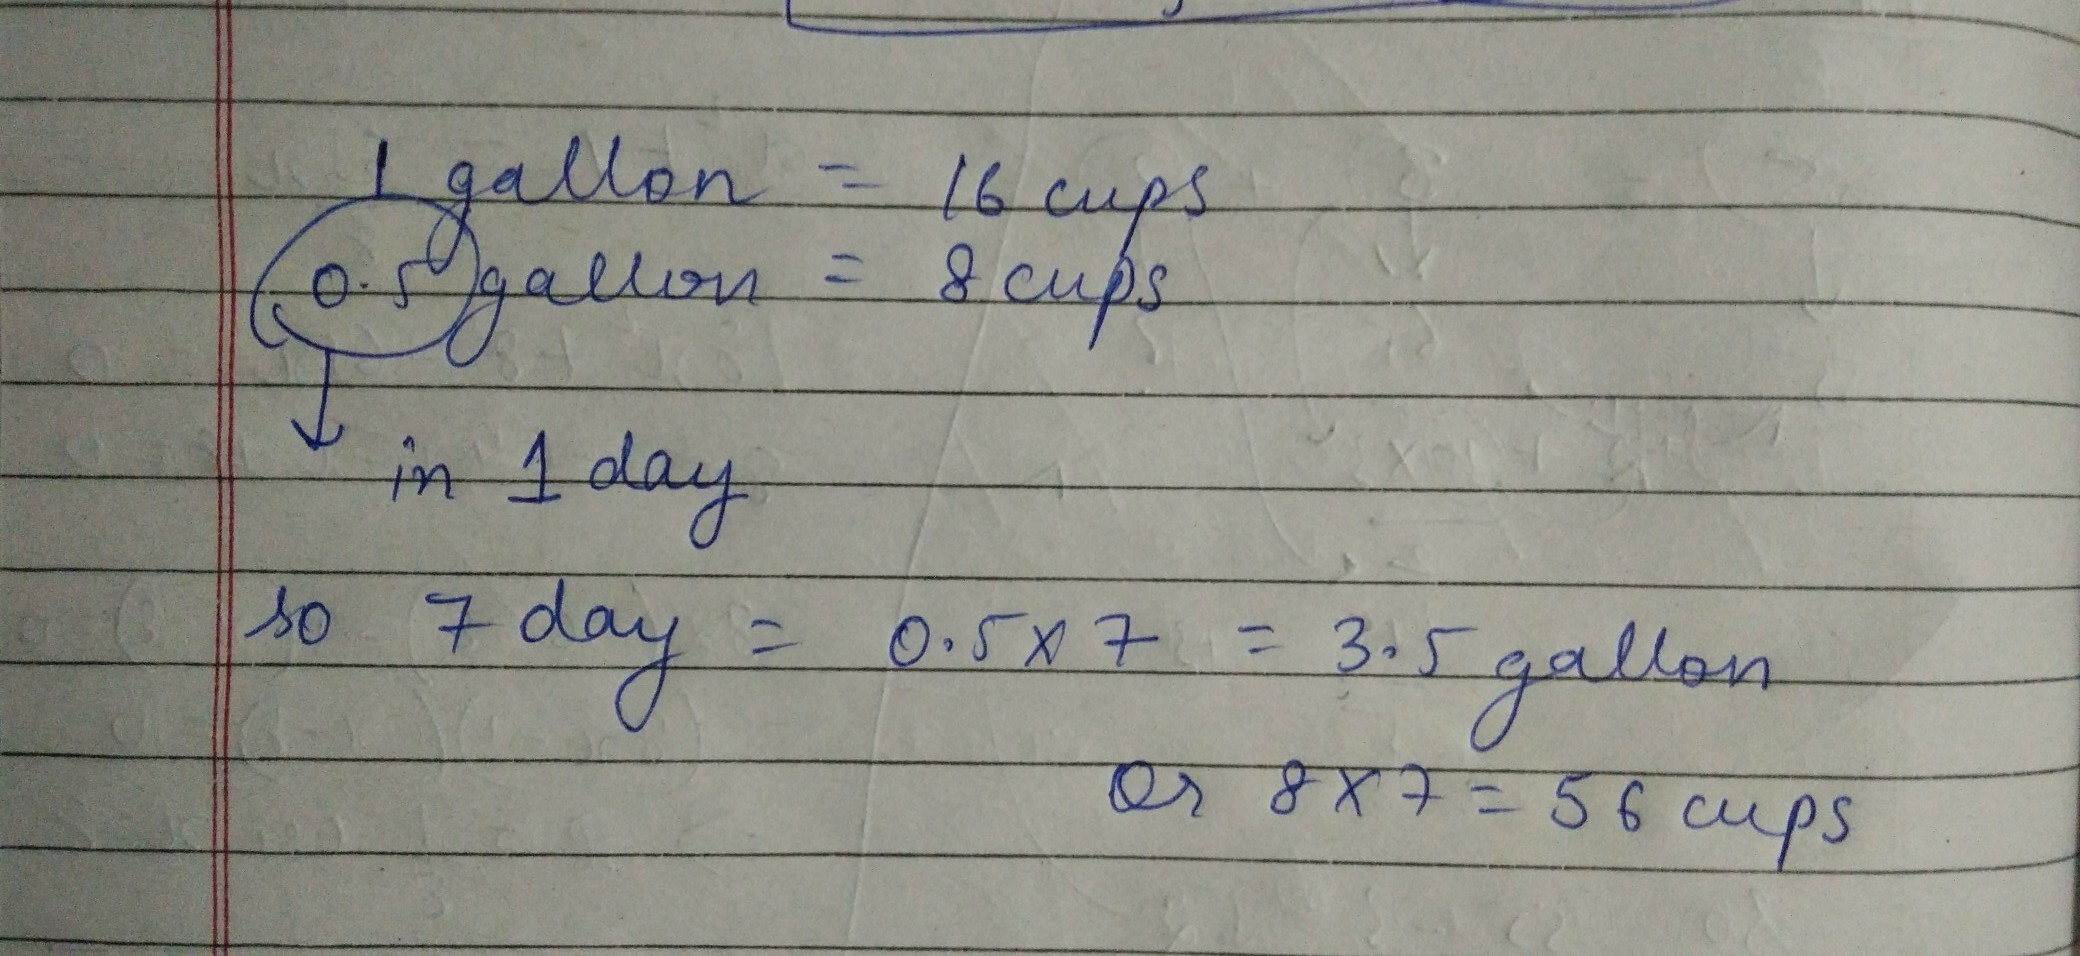 1 gallon = 16 cups
0.5 gallon = 8 cups
in 1 day
so 7 day = 0.5 x 7 = 3.5 gallon
Or 8 x 7 = 56 cups